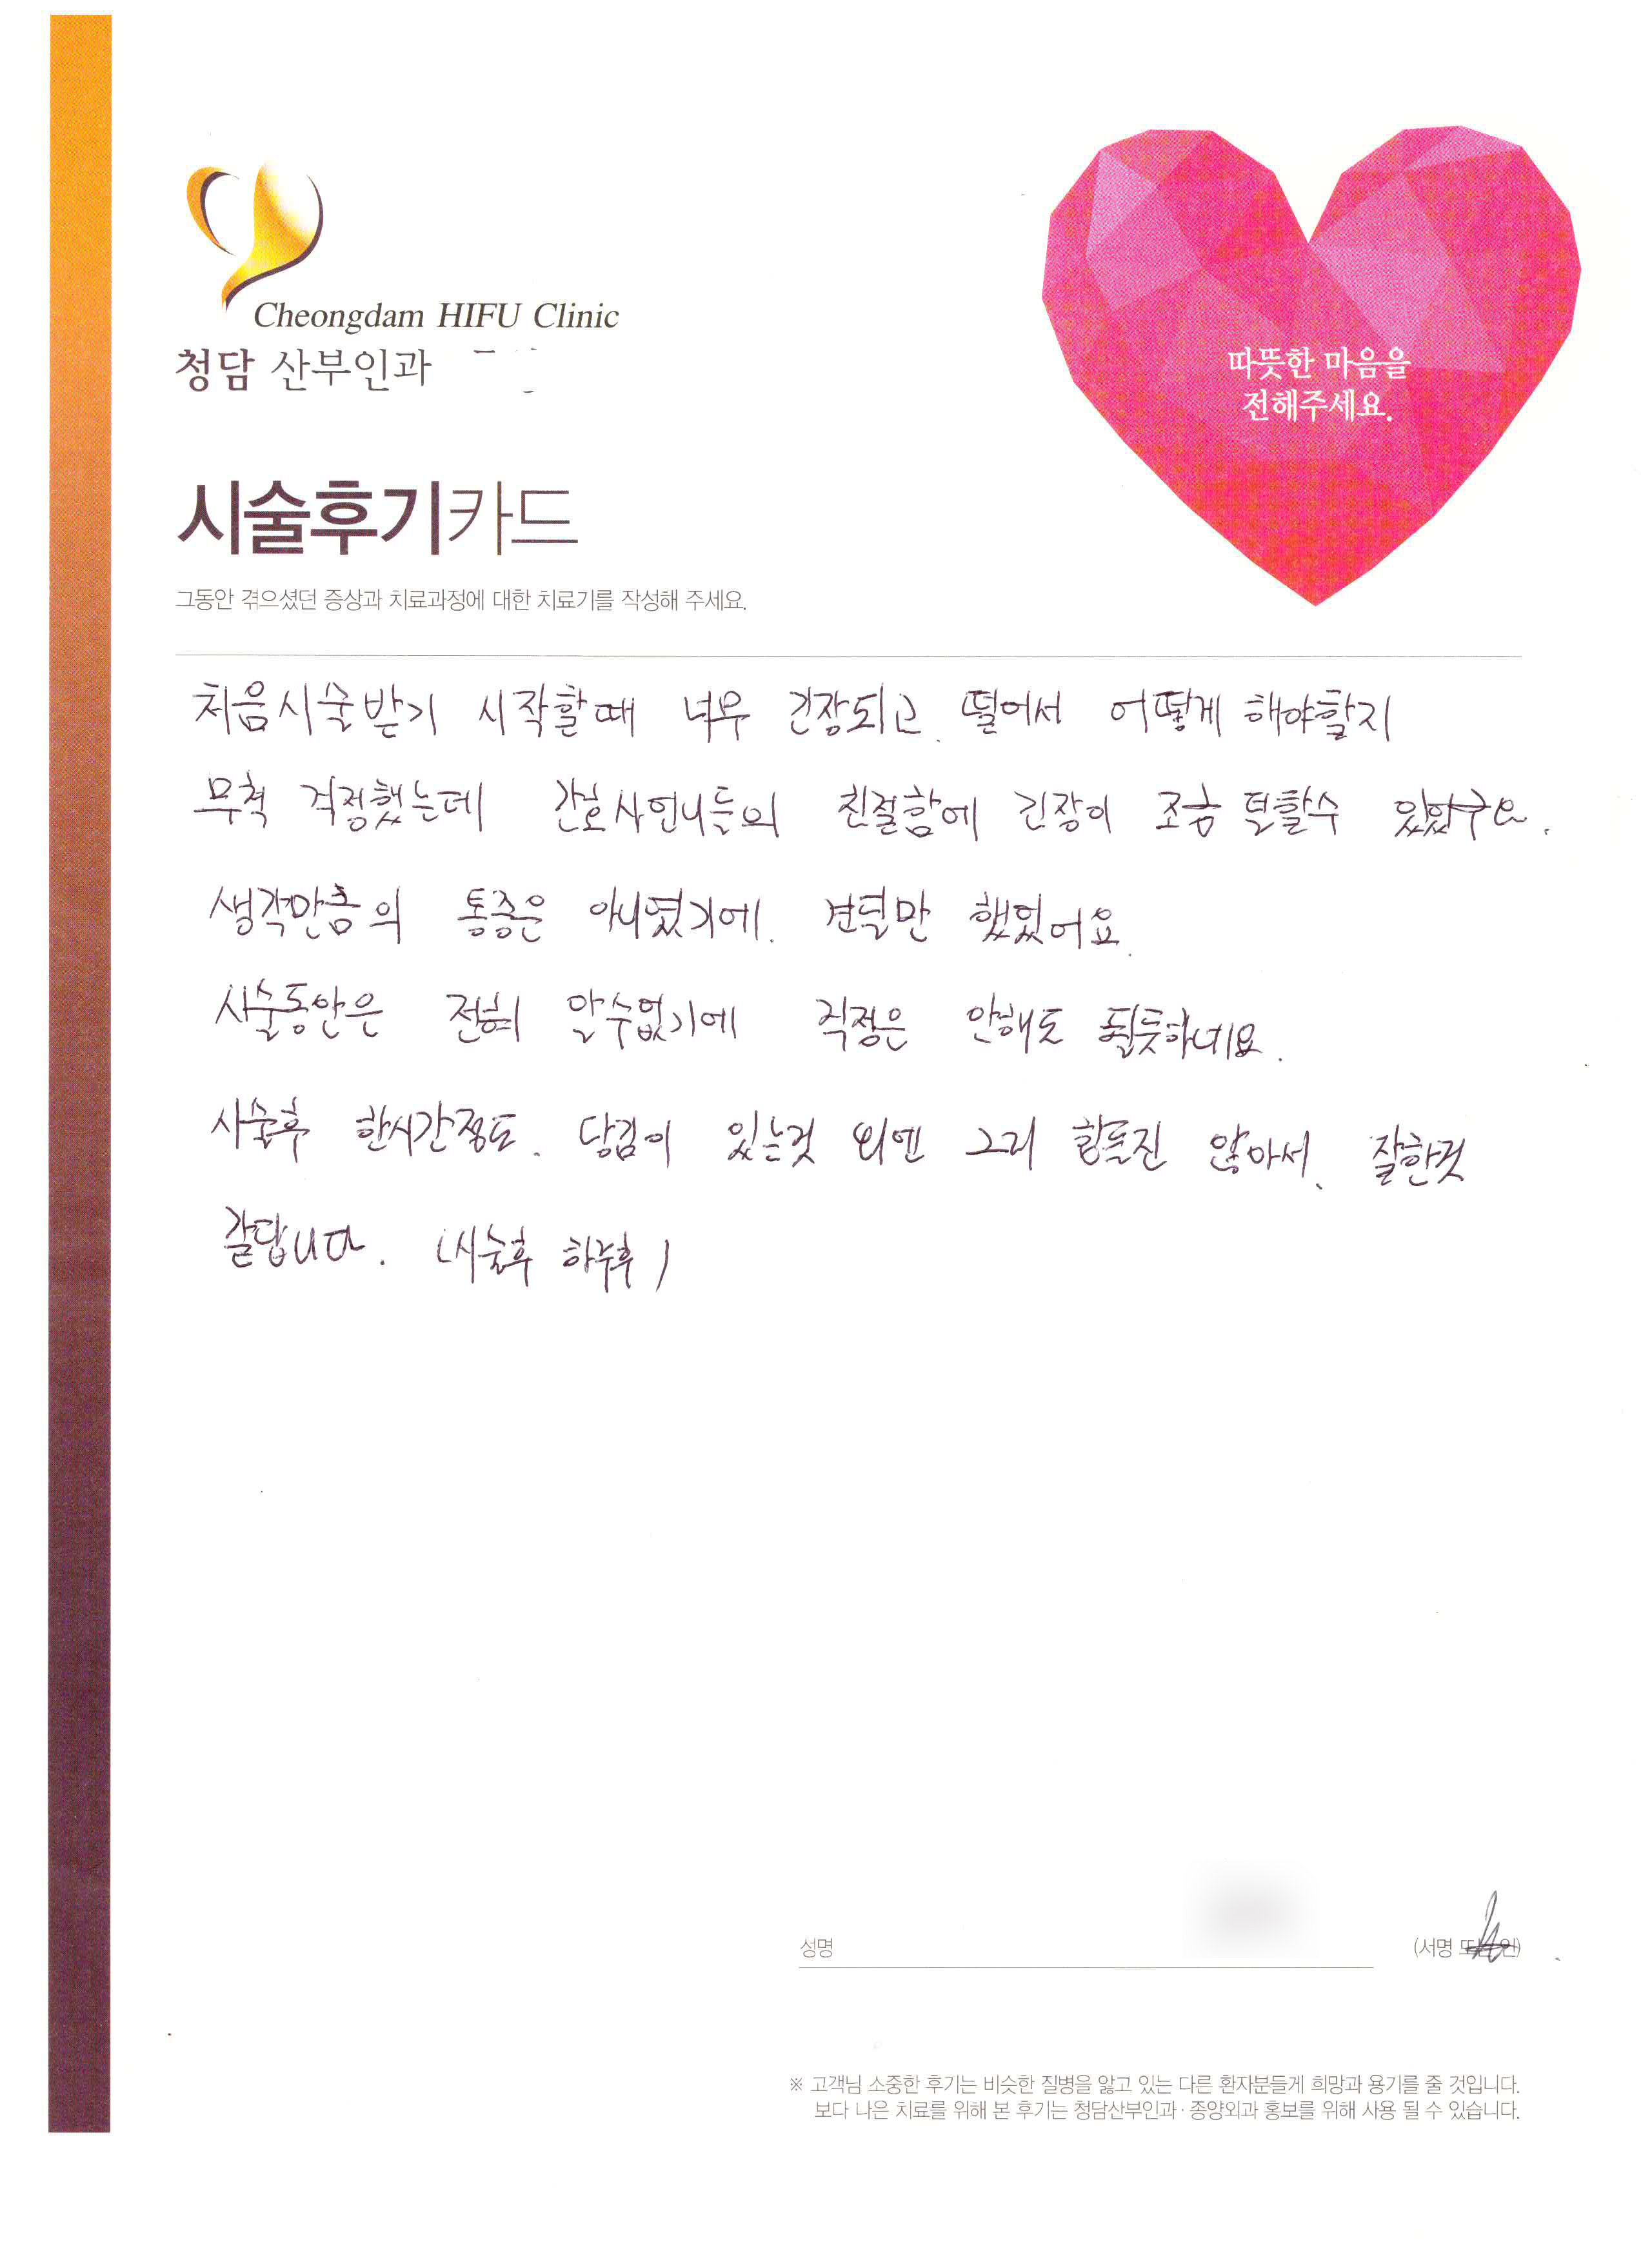 Cheongdam HIFU Clinic
청담 산부인과
따뜻한 마음을
전해주세요.
시술후기카드
그동안 겪으셨던 증상과 치료과정에 대한 치료기를 작성해 주세요.
처음시술받기 시작할때 너무 긴장되고 떨어서 어떻게 해야할지
무척 걱정했는데 간호사언니들의 친절함에 긴장이 조금 덜할수 있었구요.
생각만큼의 통증은 아니였기에. 견딜만 했었어요.
시술동안은 전혀 알수없기에 걱정은 안해도 될듯하네요.
시술후 한시간정도. 당김이 있는것 외엔 그리 힘들진 않아서. 잘한것
같답니다. (시술후 하루후)
성명
(서명 또는 인)
※ 고객님 소중한 후기는 비슷한 질병을 앓고 있는 다른 환자분들게 희망과 용기를 줄 것입니다.
보다 나은 치료를 위해 본 후기는 청담산부인과·종양외과 홍보를 위해 사용 될 수 있습니다.